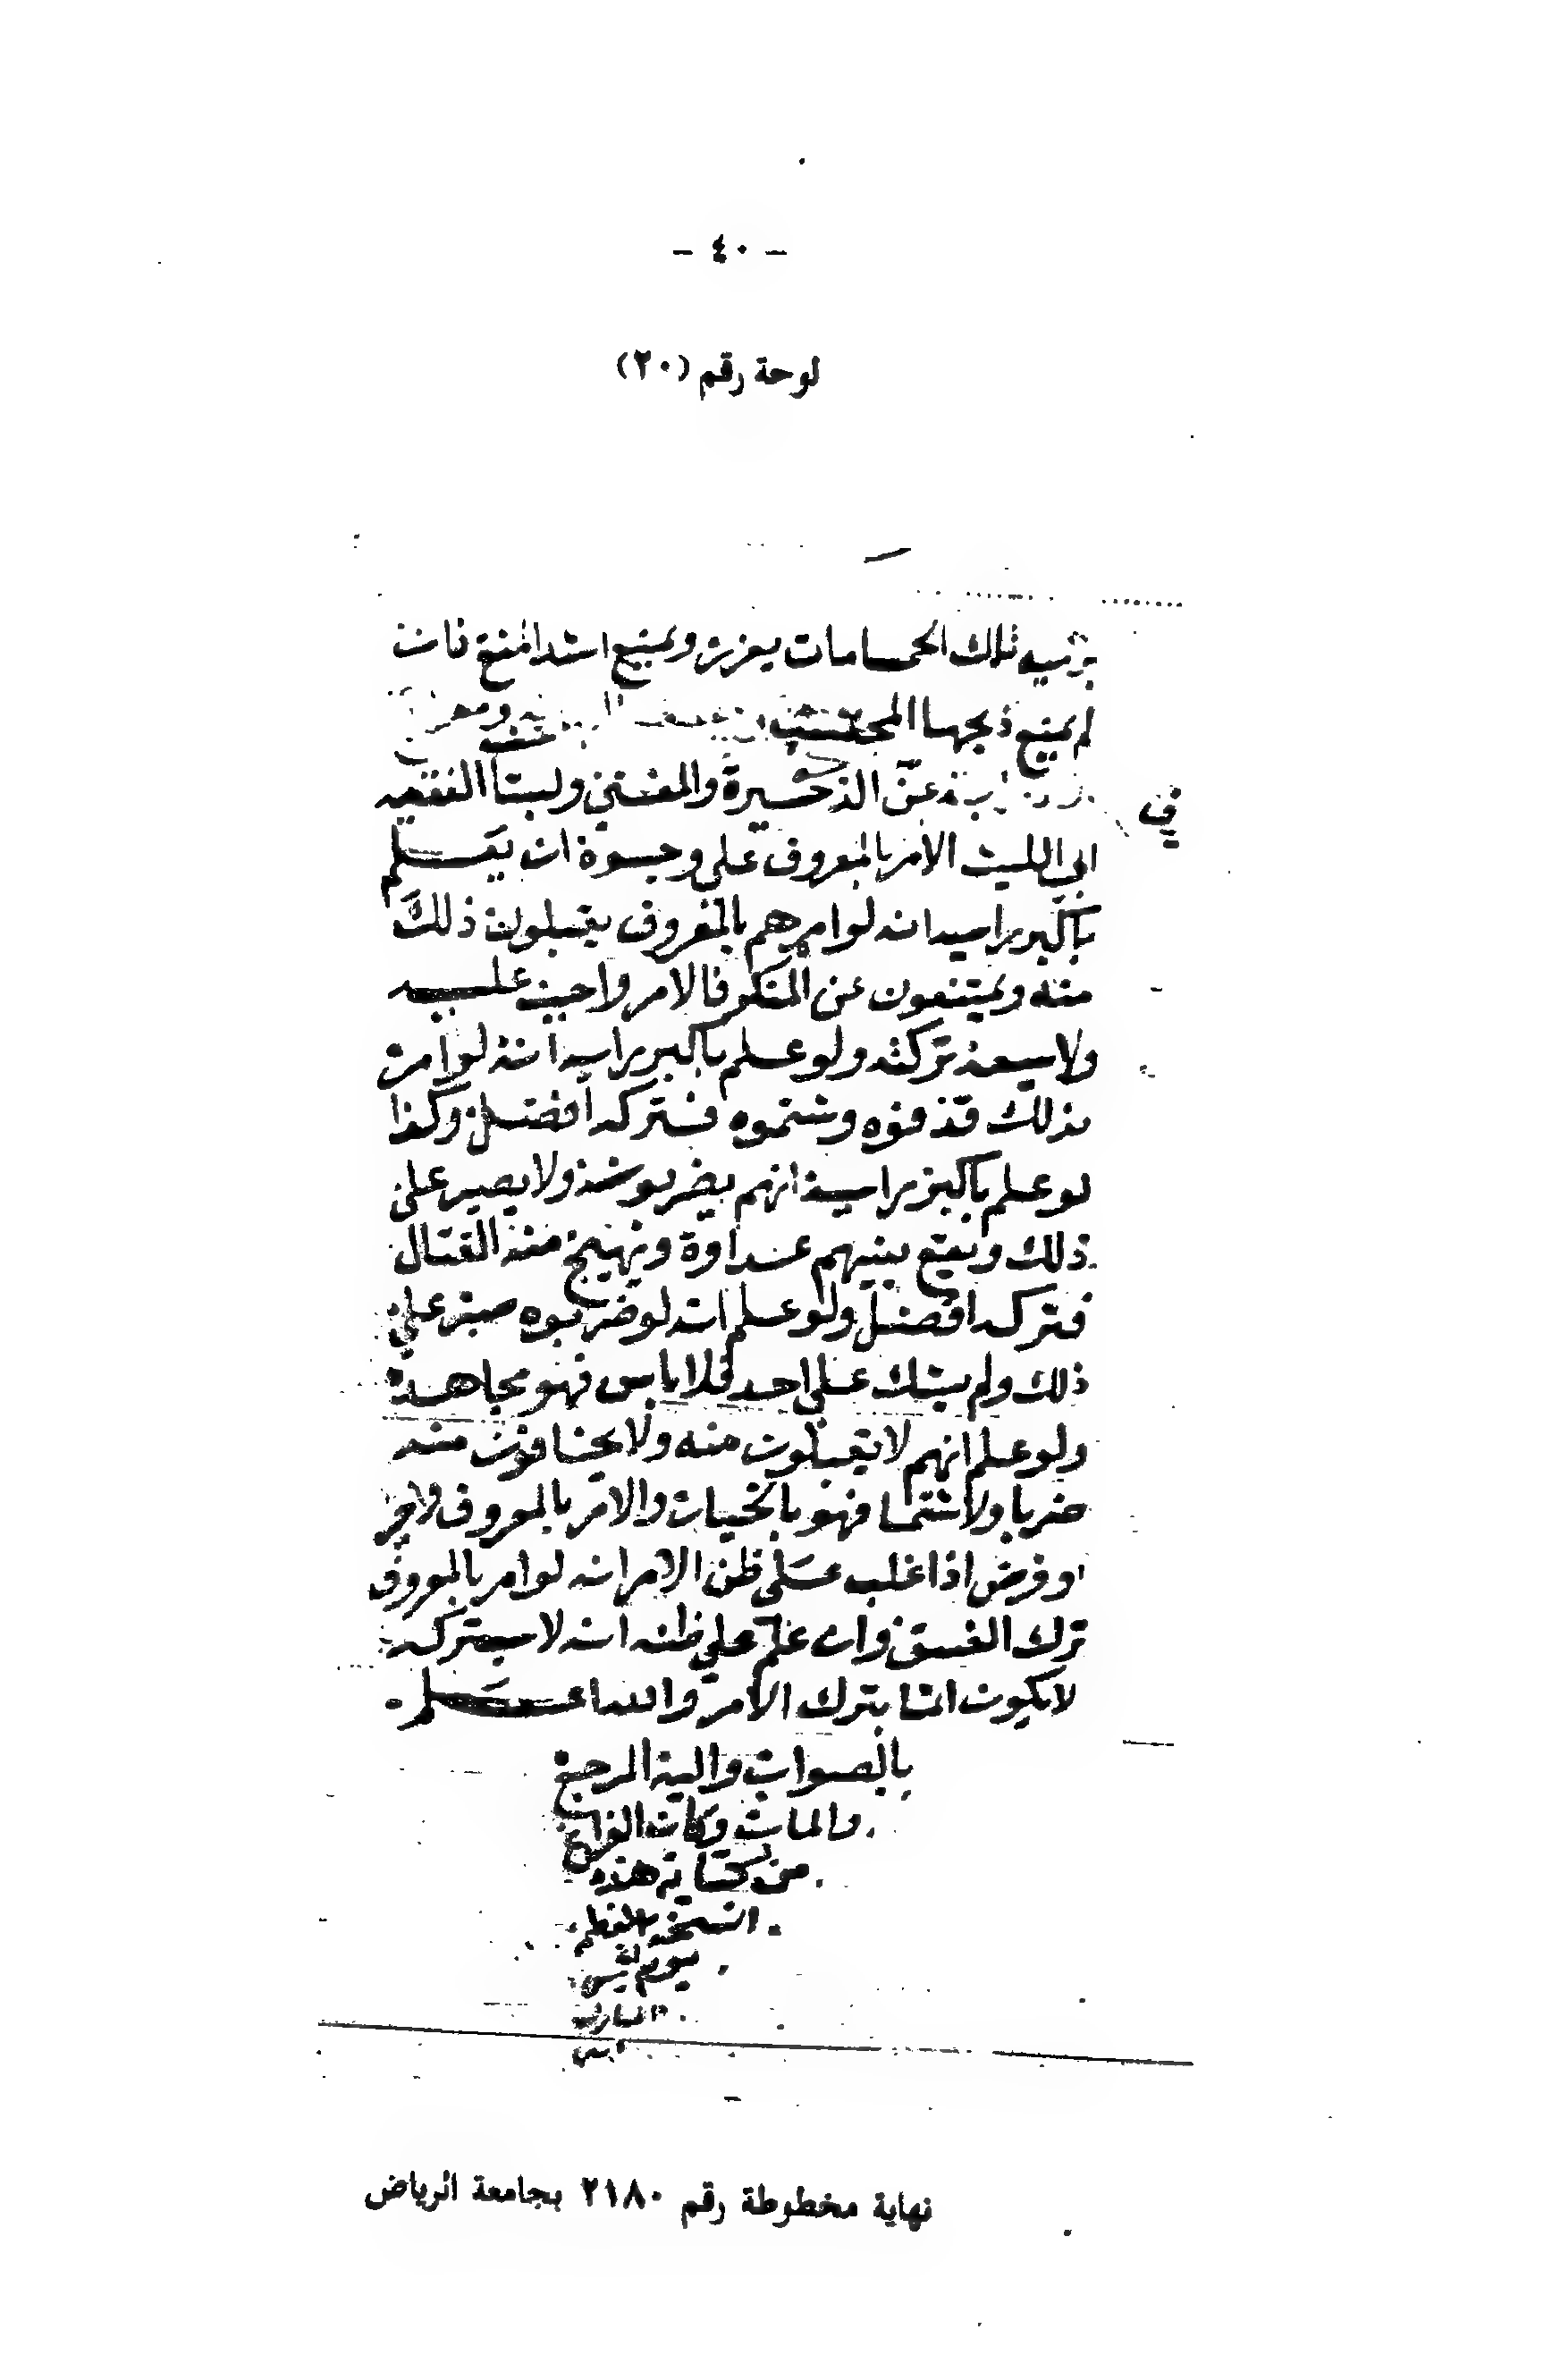 - ٤٠ -
لوحة رقم (٢٠)
برميه تلك الحمامات يعزر ويمنع اشد المنع فان
لم يمنع ذبحها المحتسب
عن الذخيرة والمفتي ولستا الفقيه
في
ابي الليث الامر بالمعروف على وجوه ان يعلم
باكبر رايه انه لو امرهم بالمعروف يقبلون ذلك
منه ويمتنعون عن المنكر فالامر واجب عليه
ولا يسعه تركه ولو علم باكبر رايه انه لو امر
بذلك قذفوه وشتموه فتركه افضل وكذا
لو علم باكبر رايه انهم يضربونه ولا يصبر على
ذلك ويقع بينهم عداوة ويهيج منه القتال
فتركه افضل ولو علم انه لو ضربوه صبر على
ذلك ولم يشك على احد فلا باس فهو مجاهد
ولو علم انهم لا يقبلون منه ولا يخافون منه
ضربا ولا شتما فهو بالخيار والامر بالمعروف
او فرض اذا غلب على ظن الامر انه لو امر بالمعروف
ترك الفسق وان علم على ظنه انه لا يتركه
لا يكون اثما بترك الامر والله اعلم
بالصواب واليه المرجع
والمات وكان الفراغ
من كتابة هذه
النسخة
يوم
المبارك
نهاية مخطوطة رقم ٢١٨٠ بجامعة الرياض